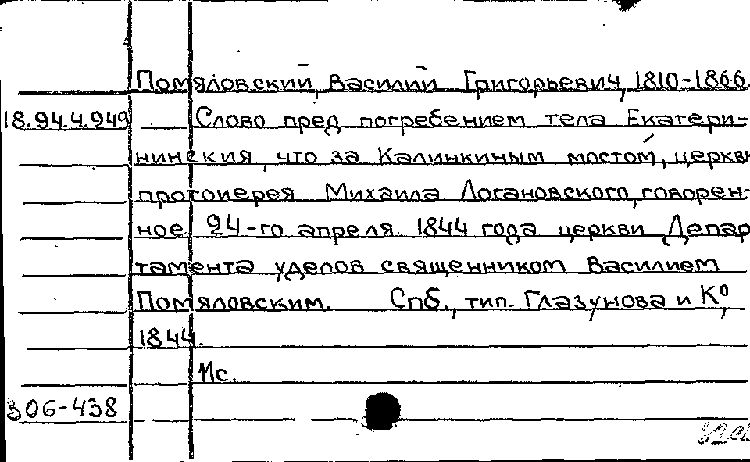 Помяловский, Василий Григорьевич, 1810-1866.
18.94.4.949 Слово пред погребением тела Екатери-
нинския, что за Калинкиным мостом, церкви
протоиерея Михаила Логановского, говорен-
ное 24-го апреля 1844 года церкви Депар
тамента уделов священником Василием
Помяловским. Спб., тип. Глазунова и К⁰,
1844.
Ис.
306-438